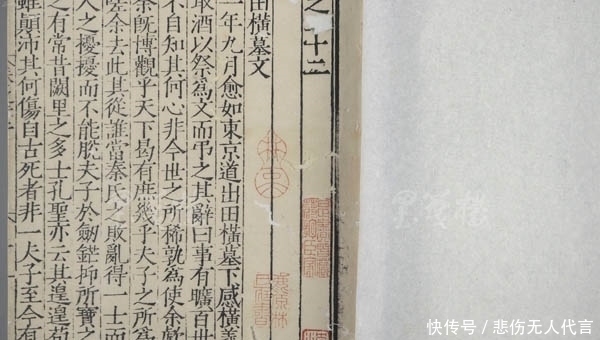 之二十二
田橫墓文
一年九月愈如東京道出田橫墓下感橫義
取酒以祭為文而弔之其辭曰事有曠百世
不自知其何心非今世之所稀孰為使余歔
余旣博觀乎天下曷有庶幾乎夫子之所為
嗟余去此其從誰當秦氏之敗亂得一士而
人之擾擾而不能脫夫子於劒鋩抑所寶之
之有常昔闕里之多士孔聖亦云其遑遑苟
雖顛沛其何傷自古死者非一夫子至今有
快传号／悲伤无人代言